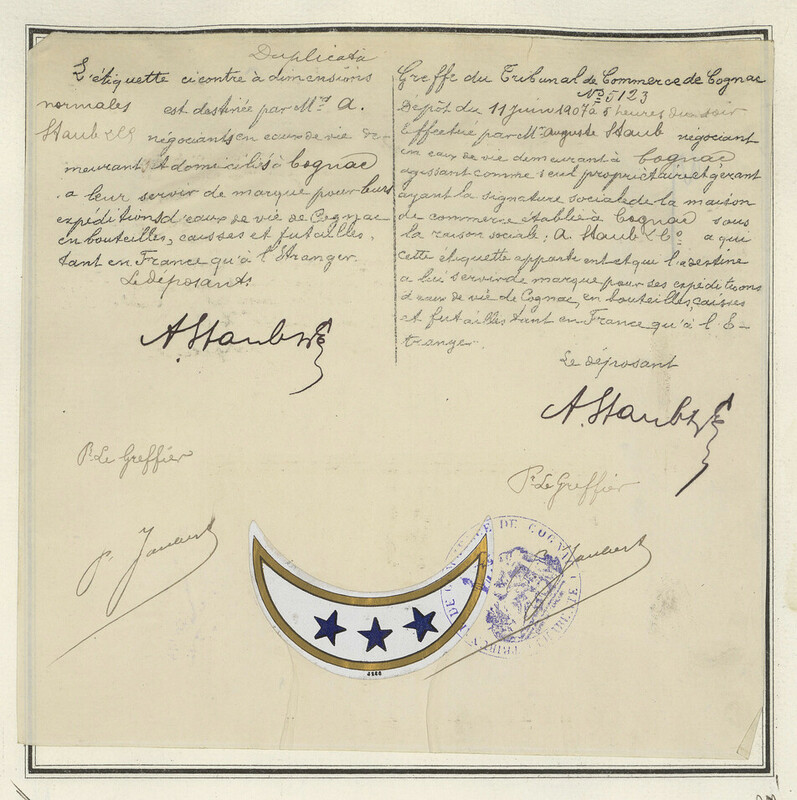 Duplicata
L'étiquette ci contre à dimensions
normales est destinée par Mrs A.
Staub & Co négociants en eaux de vie de-
meurant et domiciliés à Cognac
a leur servir de marque pour leurs
expéditions d'eaux de vie de Cognac
en bouteilles, caisses et futailles,
tant en France qu'à l'Etranger.
Le déposant
A. Staub & Co
Pr Le Greffier
Greffe du Tribunal de Commerce de Cognac
No 5123
Dépôt du 11 juin 1907 à 5 heures du soir
Effectué par Mr Auguste Staub négociant
en eaux de vie demeurant à Cognac
agissant comme seul propriétaire et gérant
ayant la signature sociale de la maison
de commerce établie à Cognac sous
la raison sociale: A. Staub & Co a qui
cette étiquette appartient et qui l'a destine
a lui servir de marque pour ses expéditions
d'eaux de vie de Cognac, en bouteilles, caisses
et futailles tant en France qu'à l'E-
tranger.
Le déposant
A. Staub & Co
Pr Le Greffier